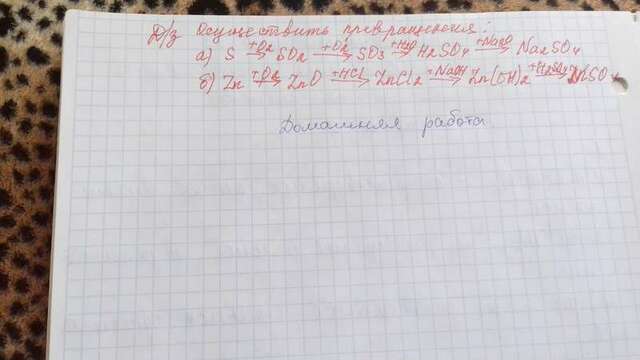 Д/з Осуществить превращения:
а) S +O2→ SO2 +O2→ SO3 +H2O→ H2SO4 +Na2O→ Na2SO4
б) Zn +O2→ ZnO +HCl→ ZnCl2 +NaOH→ Zn(OH)2 +H2SO4→ ZnSO4
Домашняя работа.